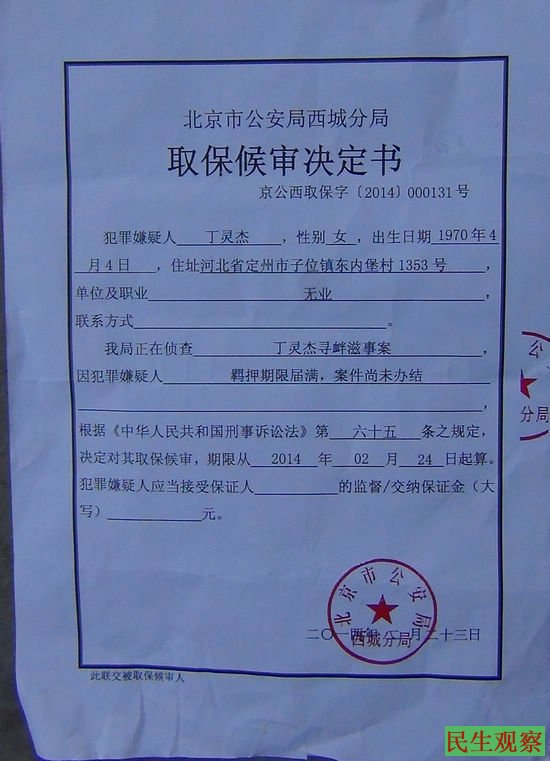 北京市公安局西城分局
取保候审决定书
京公西取保字〔2014〕000131号
犯罪嫌疑人 丁灵杰 ，性别 女 ，出生日期 1970年4
月4日 ，住址河北省定州市子位镇东内堡村1353号 ，
单位及职业 无业 ，
联系方式 。
我局正在侦查 丁灵杰寻衅滋事案 ，
因犯罪嫌疑人 羁押期限届满，案件尚未办结
，
根据《中华人民共和国刑事诉讼法》第 六十五 条之规定，
决定对其取保候审，期限从 2014 年 02 月 24 日起算。
犯罪嫌疑人应当接受保证人 的监督/交纳保证金（大
写） 元。
公
分局
北京市公安局
西城分局
二〇一四年二月二十三日
此联交被取保候审人
民生观察